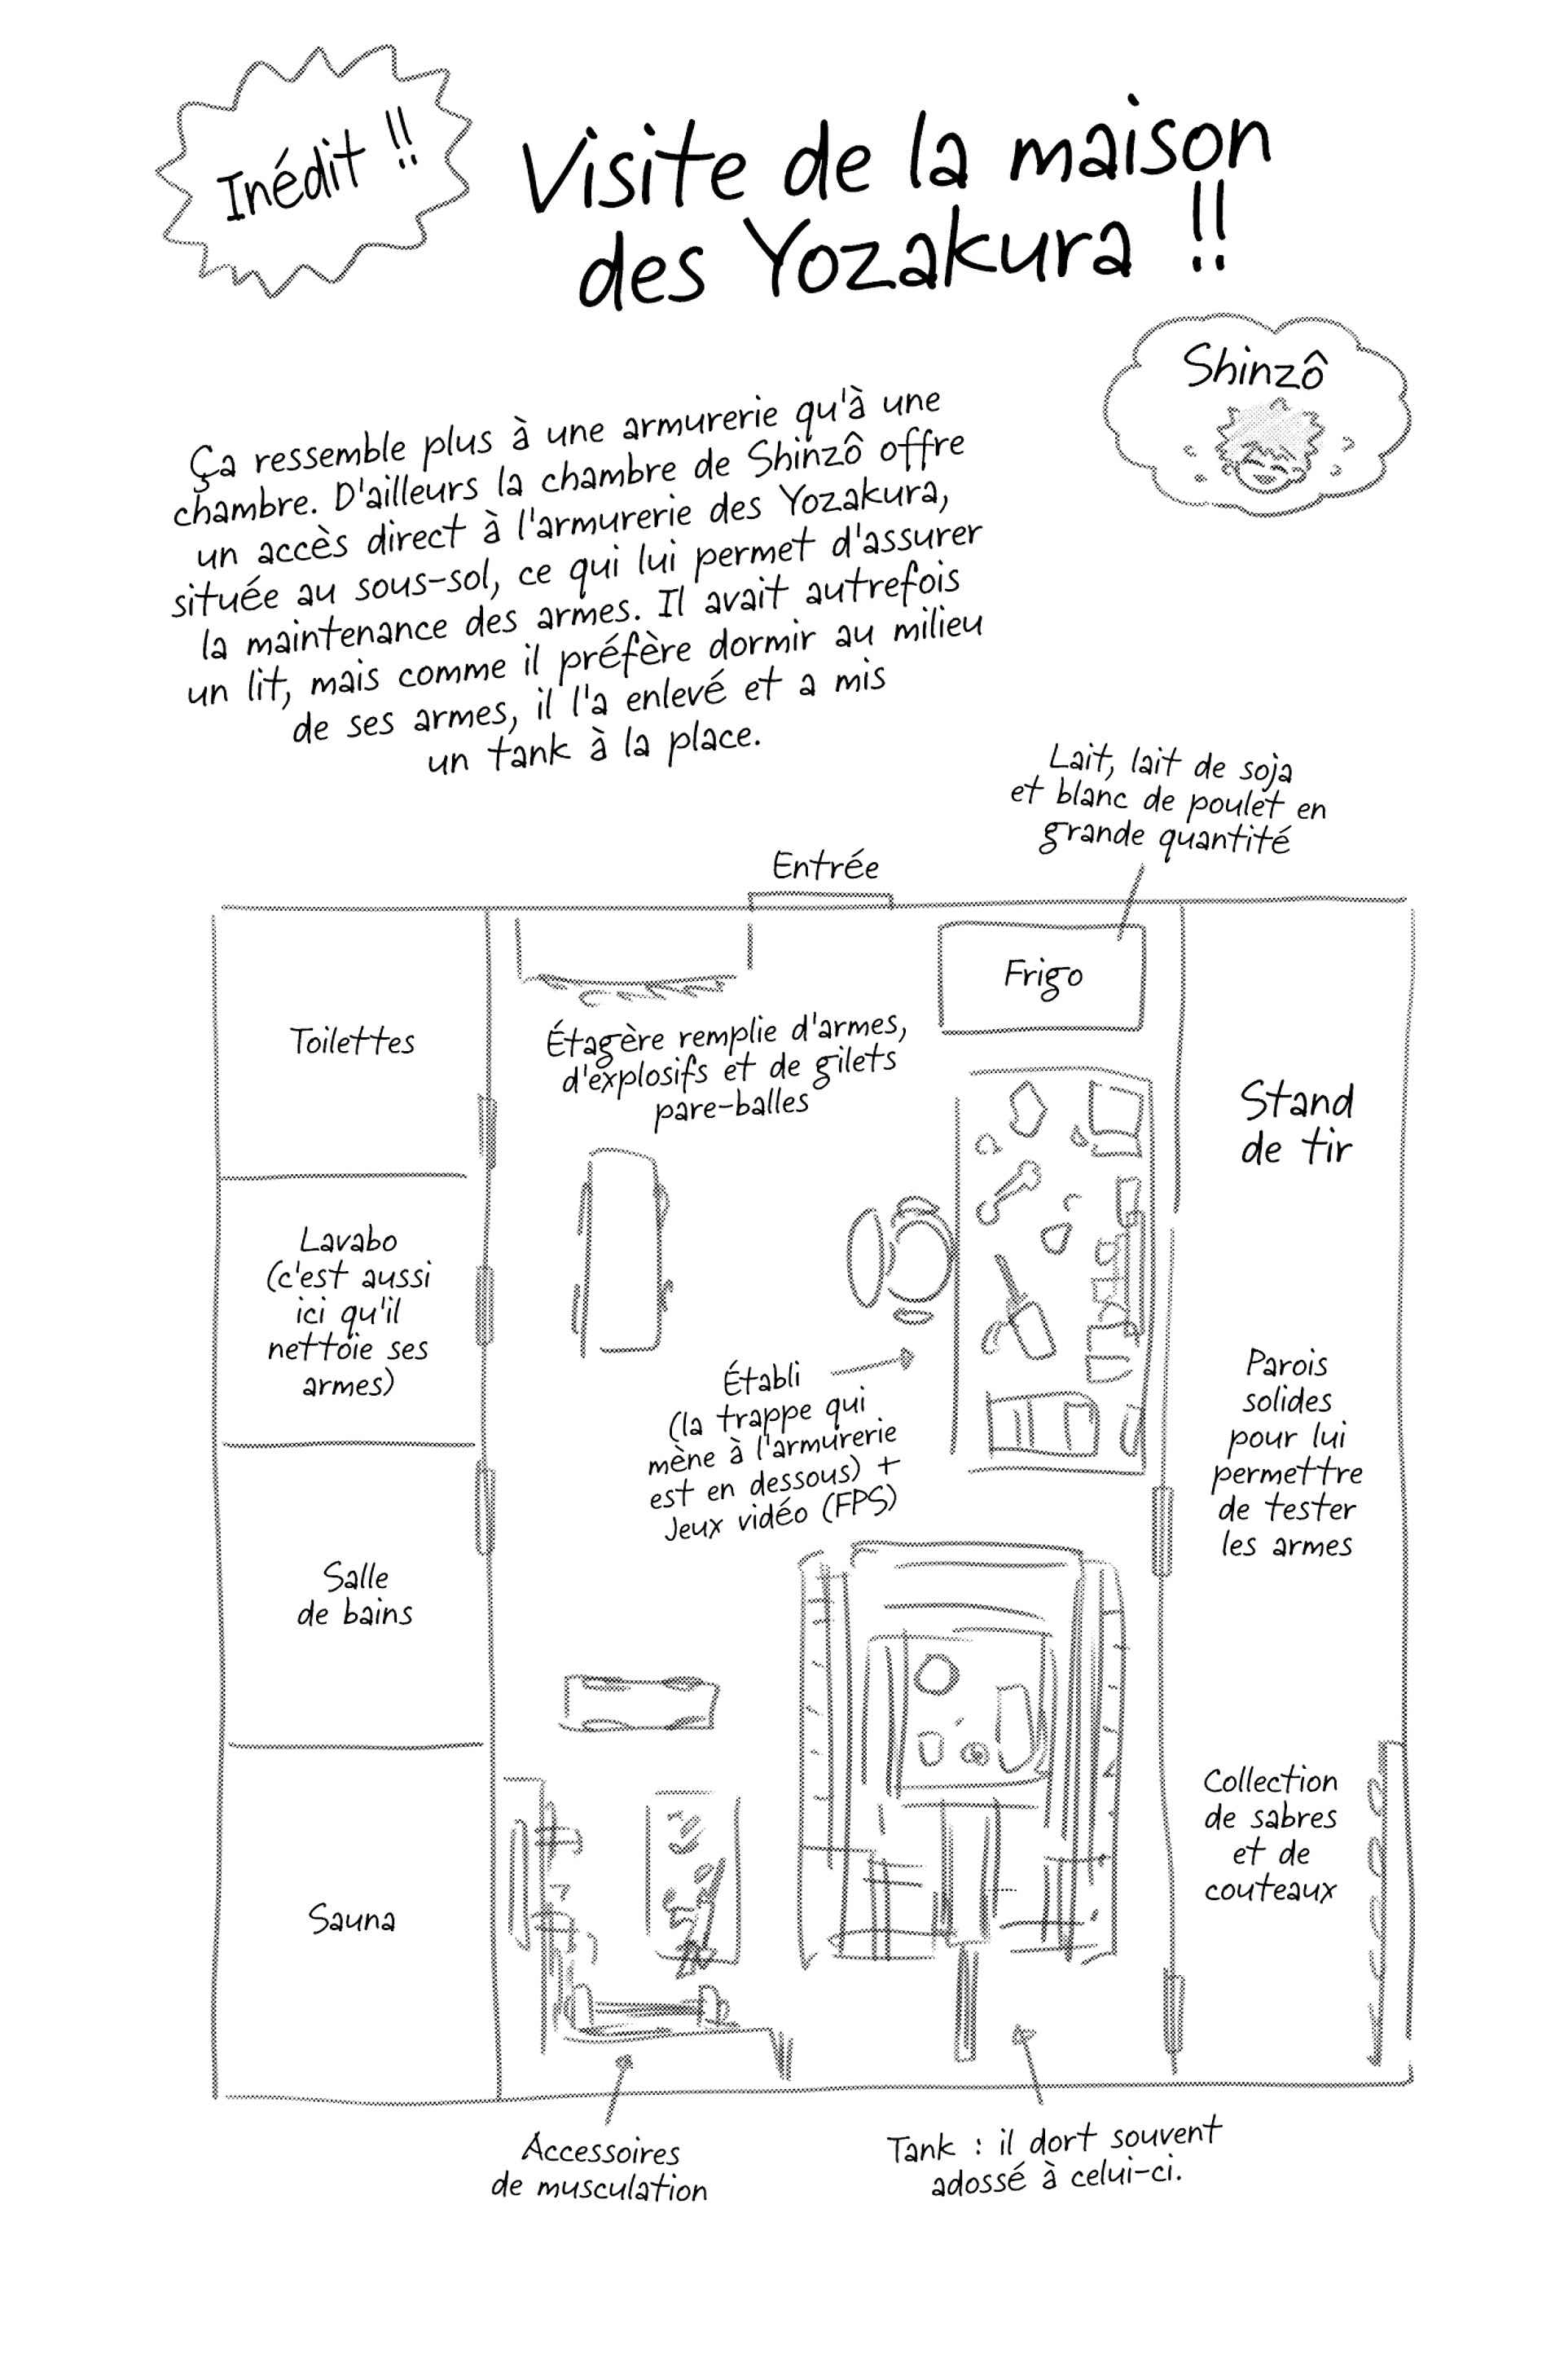 Inédit !!
Visite de la maison
des Yozakura !!
Shinzô
Ça ressemble plus à une armurerie qu'à une
chambre. D'ailleurs la chambre de Shinzô offre
un accès direct à l'armurerie des Yozakura,
située au sous-sol, ce qui lui permet d'assurer
la maintenance des armes. Il avait autrefois
un lit, mais comme il préfère dormir au milieu
de ses armes, il l'a enlevé et a mis
un tank à la place.
Lait, lait de soja
et blanc de poulet en
grande quantité
Entrée
Frigo
Toilettes
Étagère remplie d'armes,
d'explosifs et de gilets
pare-balles
Stand
de tir
Lavabo
(c'est aussi
ici qu'il
nettoie ses
armes)
Établi
(la trappe qui
mène à l'armurerie
est en dessous) +
Jeux vidéo (FPS)
Parois
solides
pour lui
permettre
de tester
les armes
Salle
de bains
Collection
de sabres
et de
couteaux
Sauna
Accessoires
de musculation
Tank : il dort souvent
adossé à celui-ci.